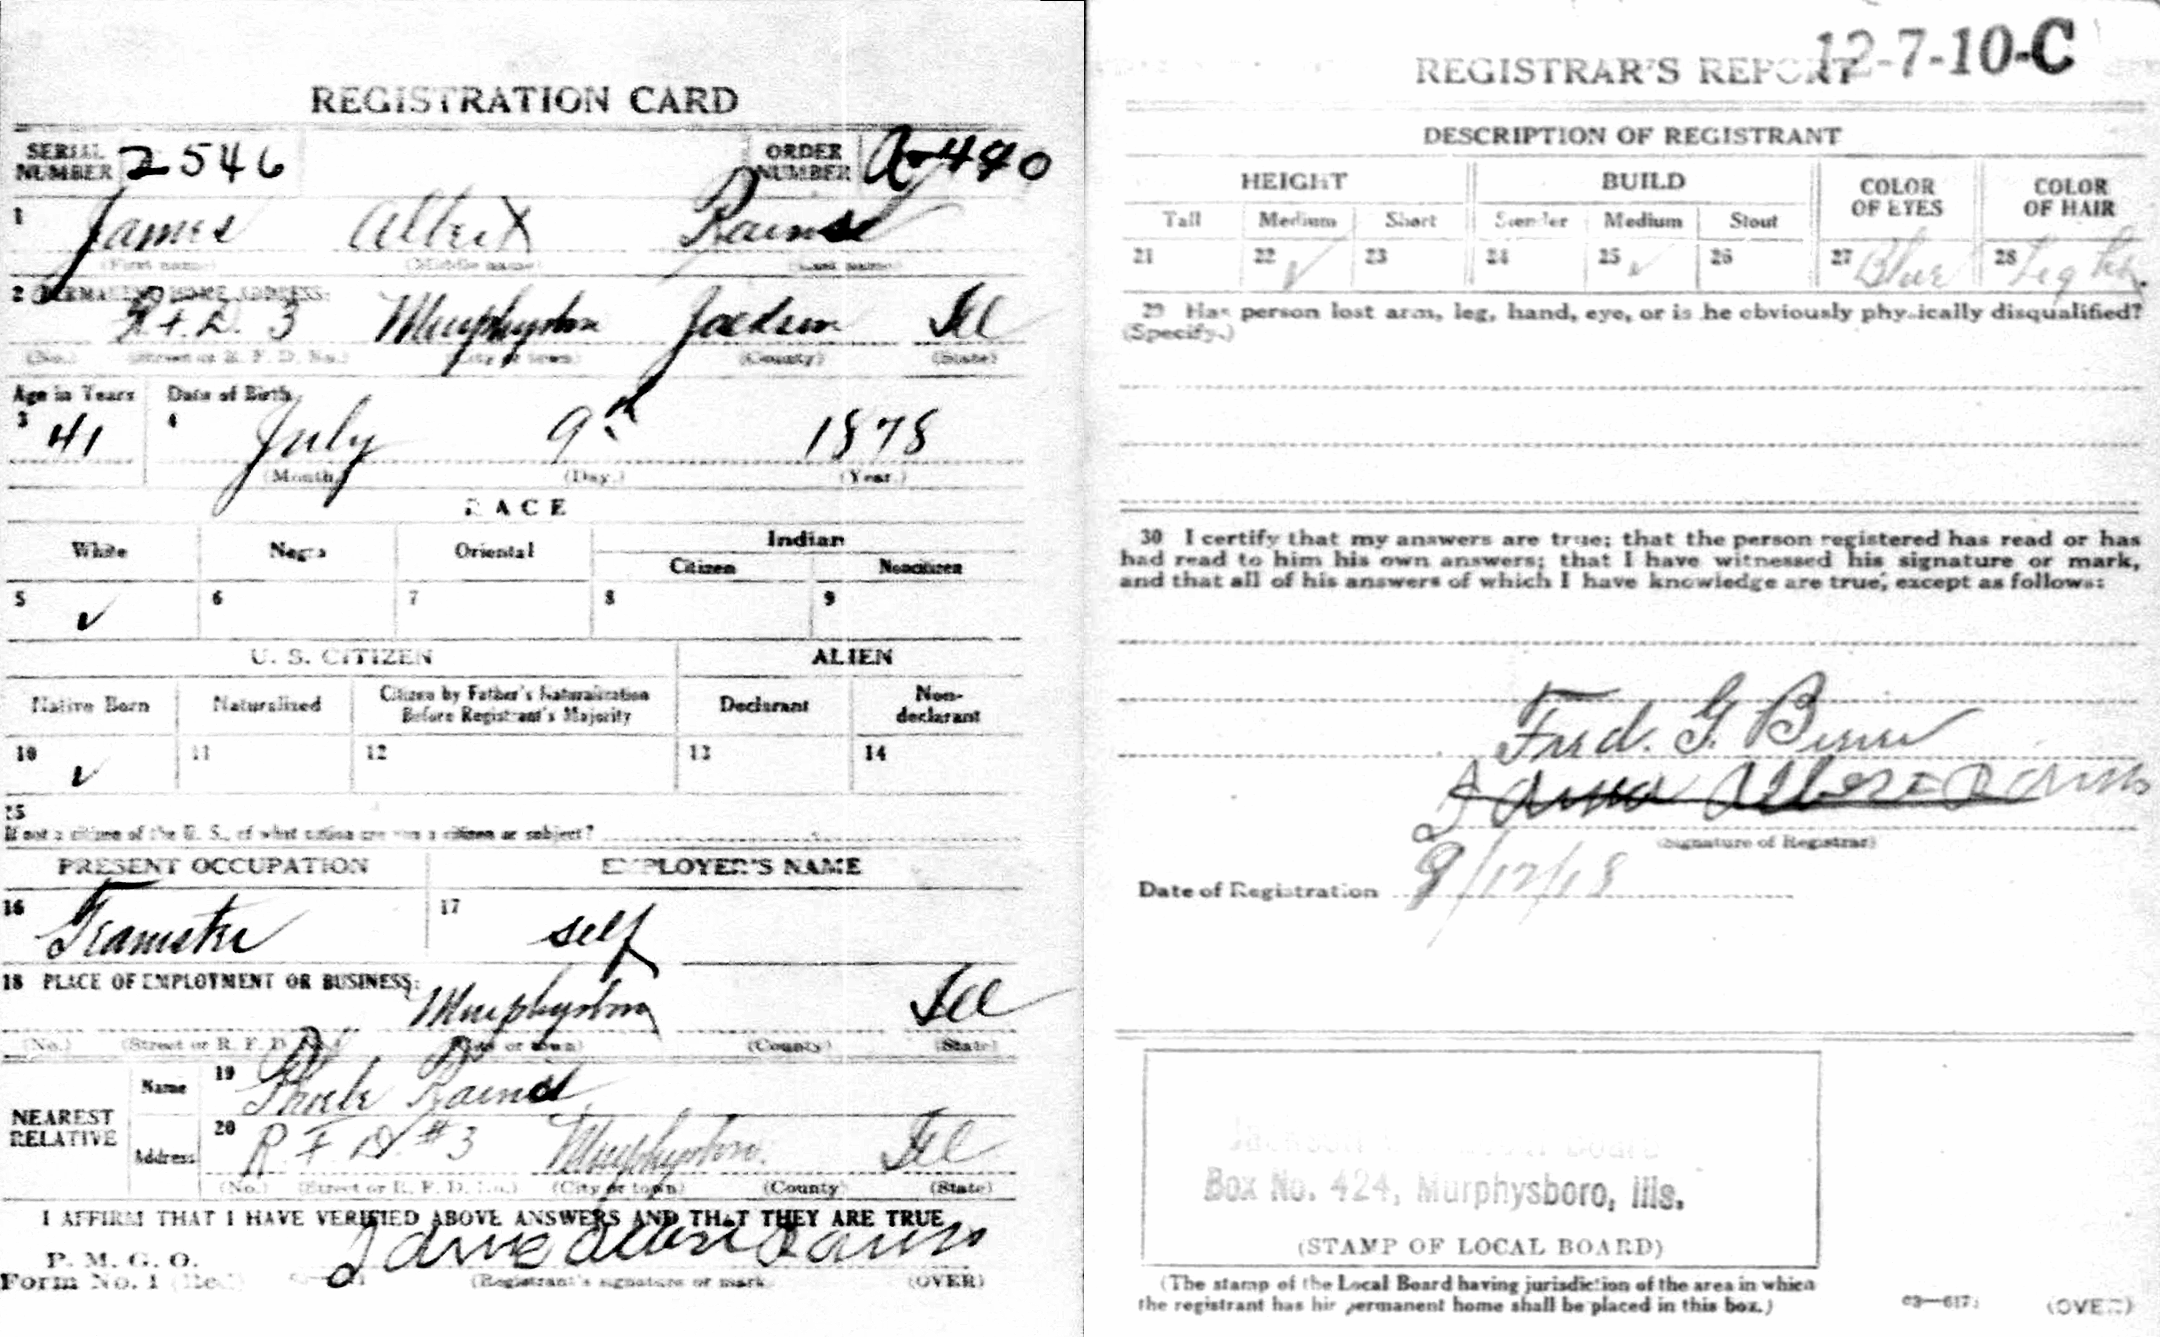 REGISTRATION CARD
SERIAL NUMBER 2546 ORDER NUMBER A-440
1 James Albert Rains
(First name) (Middle name) (Last name)
2 PERMANENT HOME ADDRESS:
R.F.D. 3 Murphysboro Jackson Ill
(No.) (Street or R. F. D. No.) (City or town) (County) (State)
Age in Years Date of Birth
3 41 4 July 9th 1878
(Month) (Day.) (Year.)
RACE
White Negro Oriental Indian
Citizen Noncitizen
5 ✓ 6 7 8 9
U. S. CITIZEN ALIEN
Native Born Naturalized Citizen by Father's Naturalization Before Registrant's Majority Declarant Non-declarant
10 ✓ 11 12 13 14
15
If not a citizen of the U. S., of what nation are you a citizen or subject?
PRESENT OCCUPATION EMPLOYER'S NAME
16 Teamster 17 self
18 PLACE OF EMPLOYMENT OR BUSINESS:
Murphysboro Ill
(No.) (Street or R. F. D. No.) (City or town) (County) (State)
NEAREST RELATIVE
Name 19 Phoebe Rains
Address 20 R F D #3 Murphysboro Ill
(No.) (Street or R. F. D. No.) (City or town) (County) (State)
I AFFIRM THAT I HAVE VERIFIED ABOVE ANSWERS AND THAT THEY ARE TRUE
P. M. G. O.
Form No. 1 (Red) James Albert Rains
(Registrant's signature or mark) (OVER)
12-7-10-C
REGISTRAR'S REPORT
DESCRIPTION OF REGISTRANT
HEIGHT BUILD COLOR OF EYES COLOR OF HAIR
Tall Medium Short Slender Medium Stout
21 22 ✓ 23 24 25 ✓ 26 27 Blue 28 Light
29 Has person lost arm, leg, hand, eye, or is he obviously physically disqualified?
(Specify.)
30 I certify that my answers are true; that the person registered has read or has
had read to him his own answers; that I have witnessed his signature or mark,
and that all of his answers of which I have knowledge are true, except as follows:
Fred. G.
James Albert Rains
(Signature of Registrar)
Date of Registration 9/12/18
Jackson Board
Box No. 424, Murphysboro, Ills.
(STAMP OF LOCAL BOARD)
(The stamp of the Local Board having jurisdiction of the area in which
the registrant has his permanent home shall be placed in this box.)
(OVER)